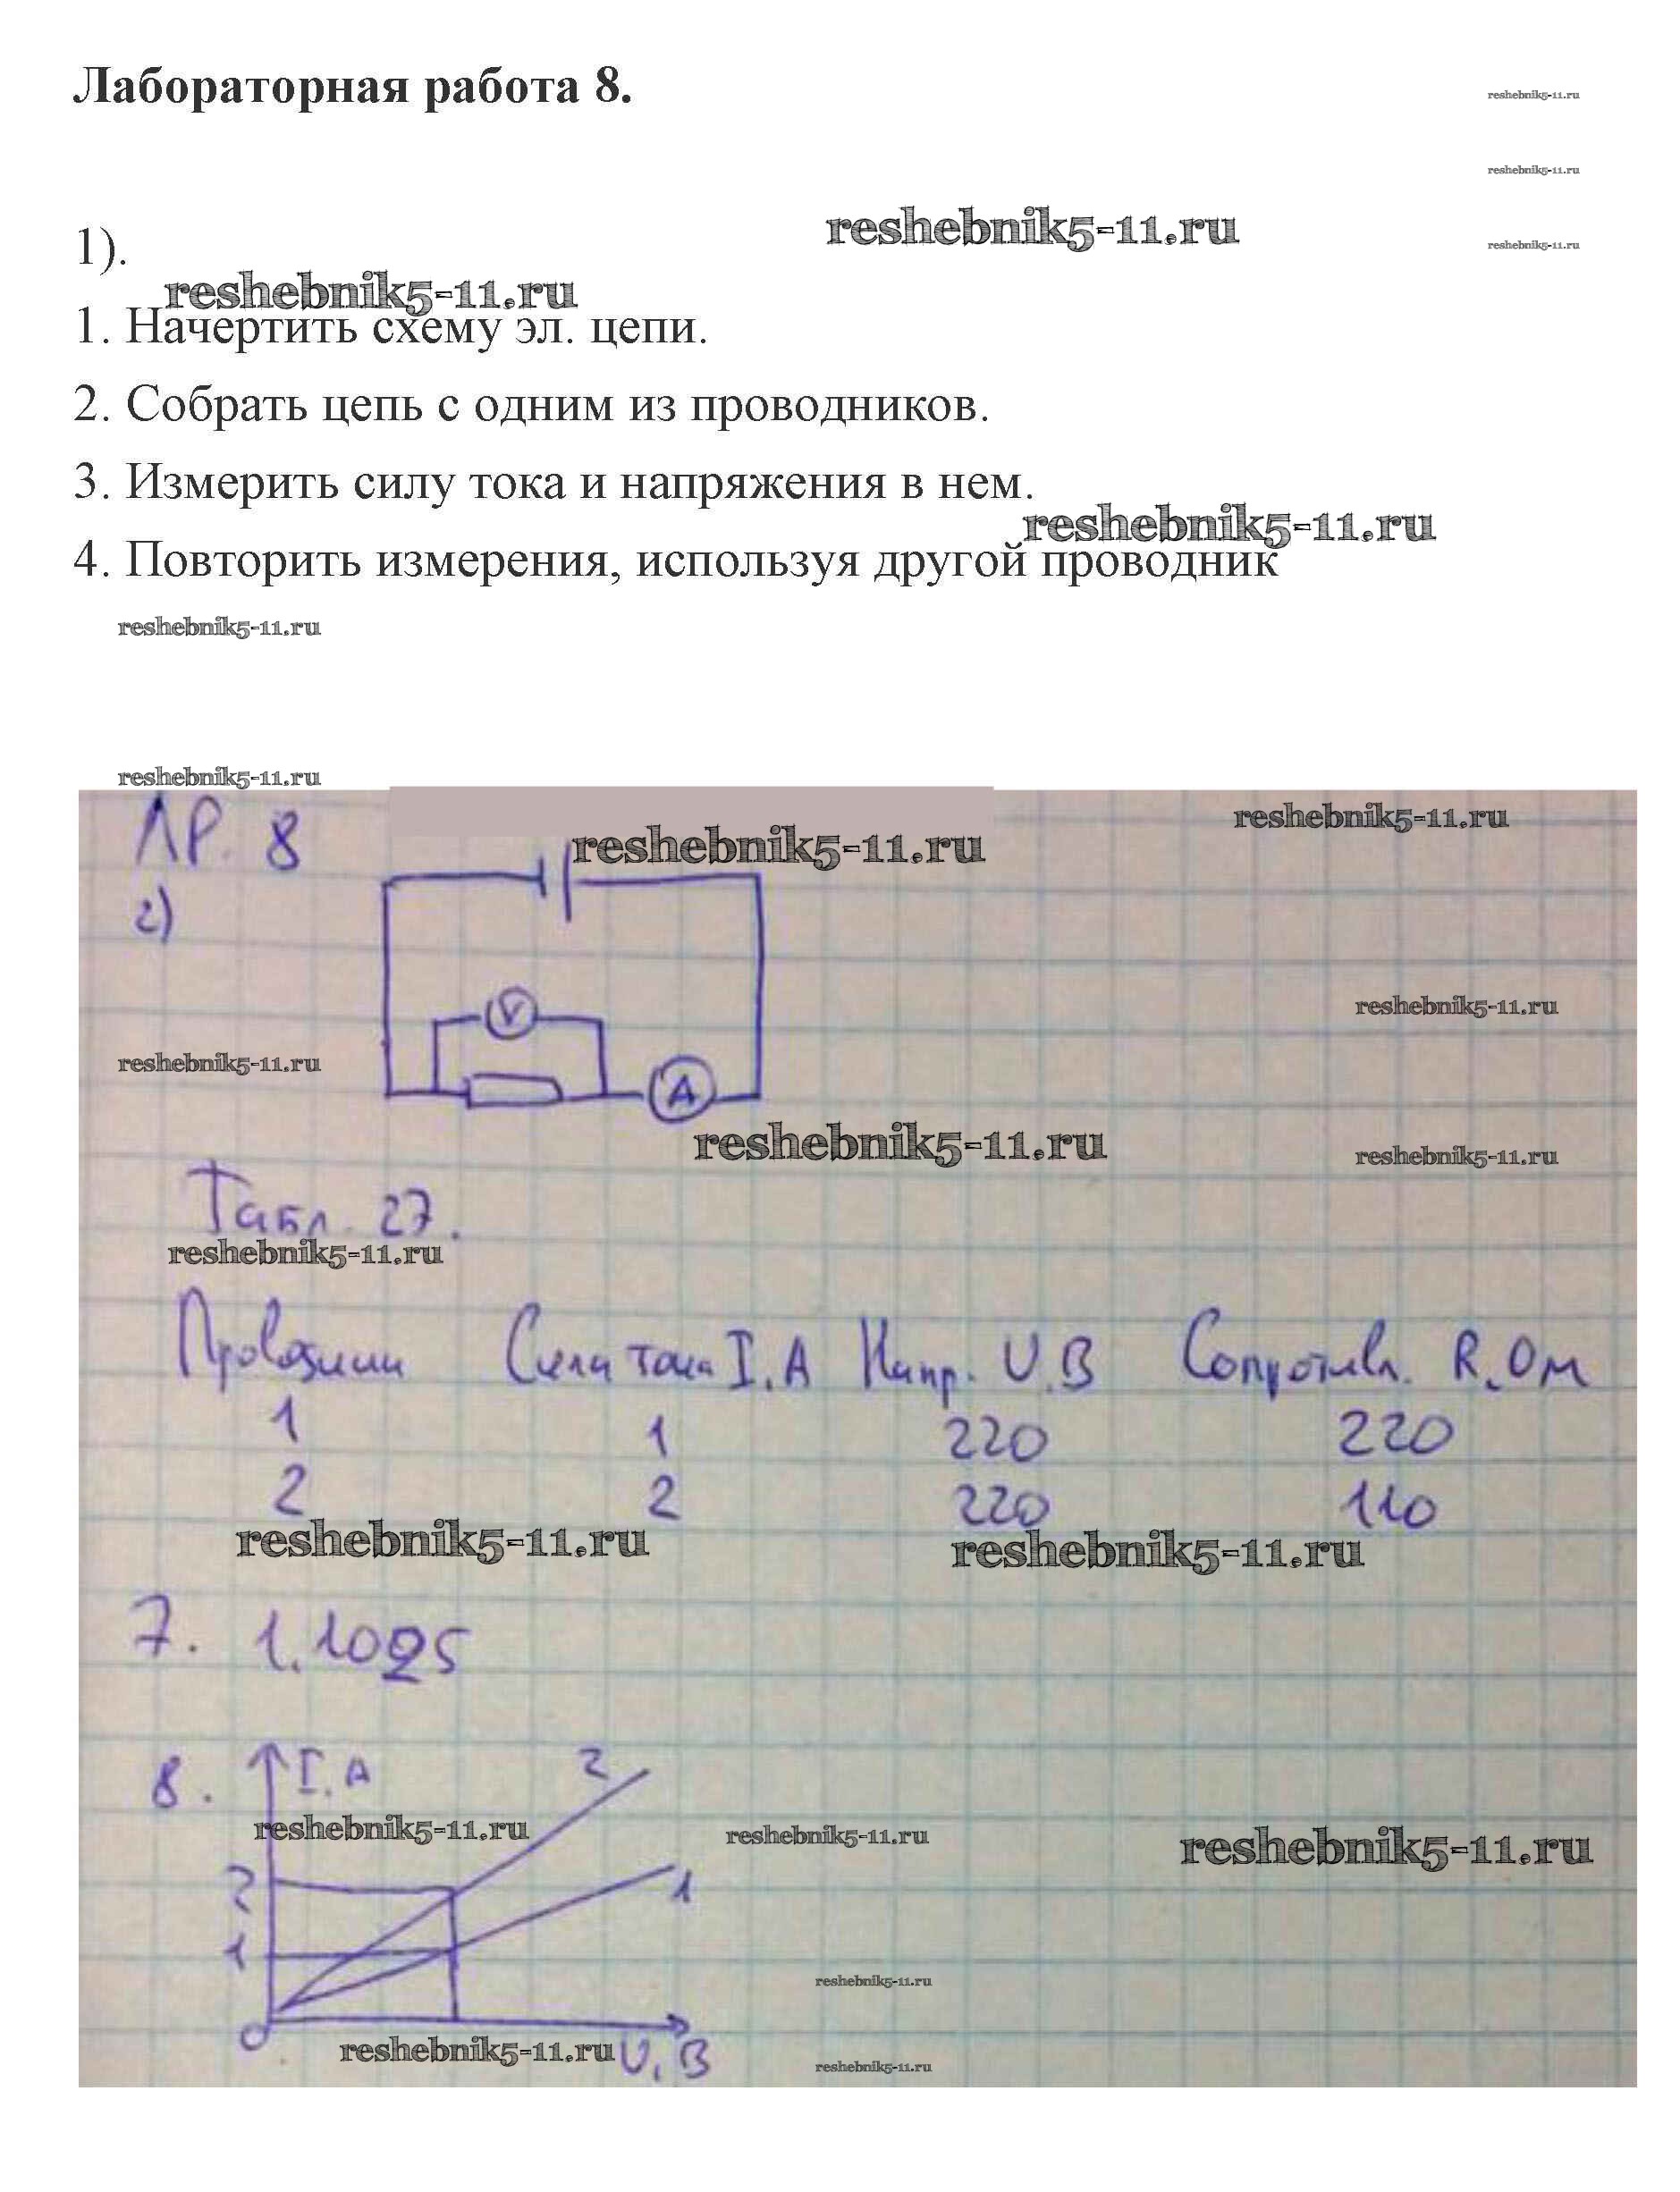 Лабораторная работа 8.
reshebnik5-11.ru
reshebnik5-11.ru
reshebnik5-11.ru
reshebnik5-11.ru
1).
reshebnik5-11.ru
1. Начертить схему эл. цепи.
2. Собрать цепь с одним из проводников.
3. Измерить силу тока и напряжения в нем.
reshebnik5-11.ru
4. Повторить измерения, используя другой проводник
reshebnik5-11.ru
reshebnik5-11.ru
ЛР. 8
reshebnik5-11.ru
reshebnik5-11.ru
2)
V
reshebnik5-11.ru
reshebnik5-11.ru
A
reshebnik5-11.ru
reshebnik5-11.ru
Табл. 27.
reshebnik5-11.ru
Сила тока I.A Напр. U.В Сопротивл. R.Ом
1 1 220 220
2 2 220 110
reshebnik5-11.ru
reshebnik5-11.ru
7.
8. I.A 2
reshebnik5-11.ru
reshebnik5-11.ru
reshebnik5-11.ru
2 1
1
reshebnik5-11.ru
0
reshebnik5-11.ru U, В
reshebnik5-11.ru